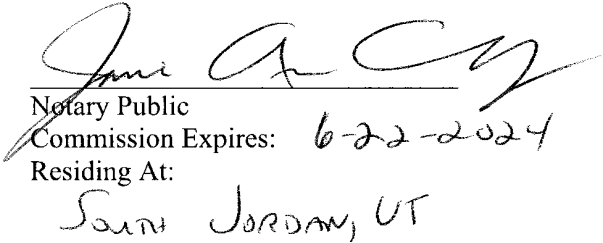 Notary Public
Commission Expires: 6-22-2024
Residing At:
South Jordan, UT